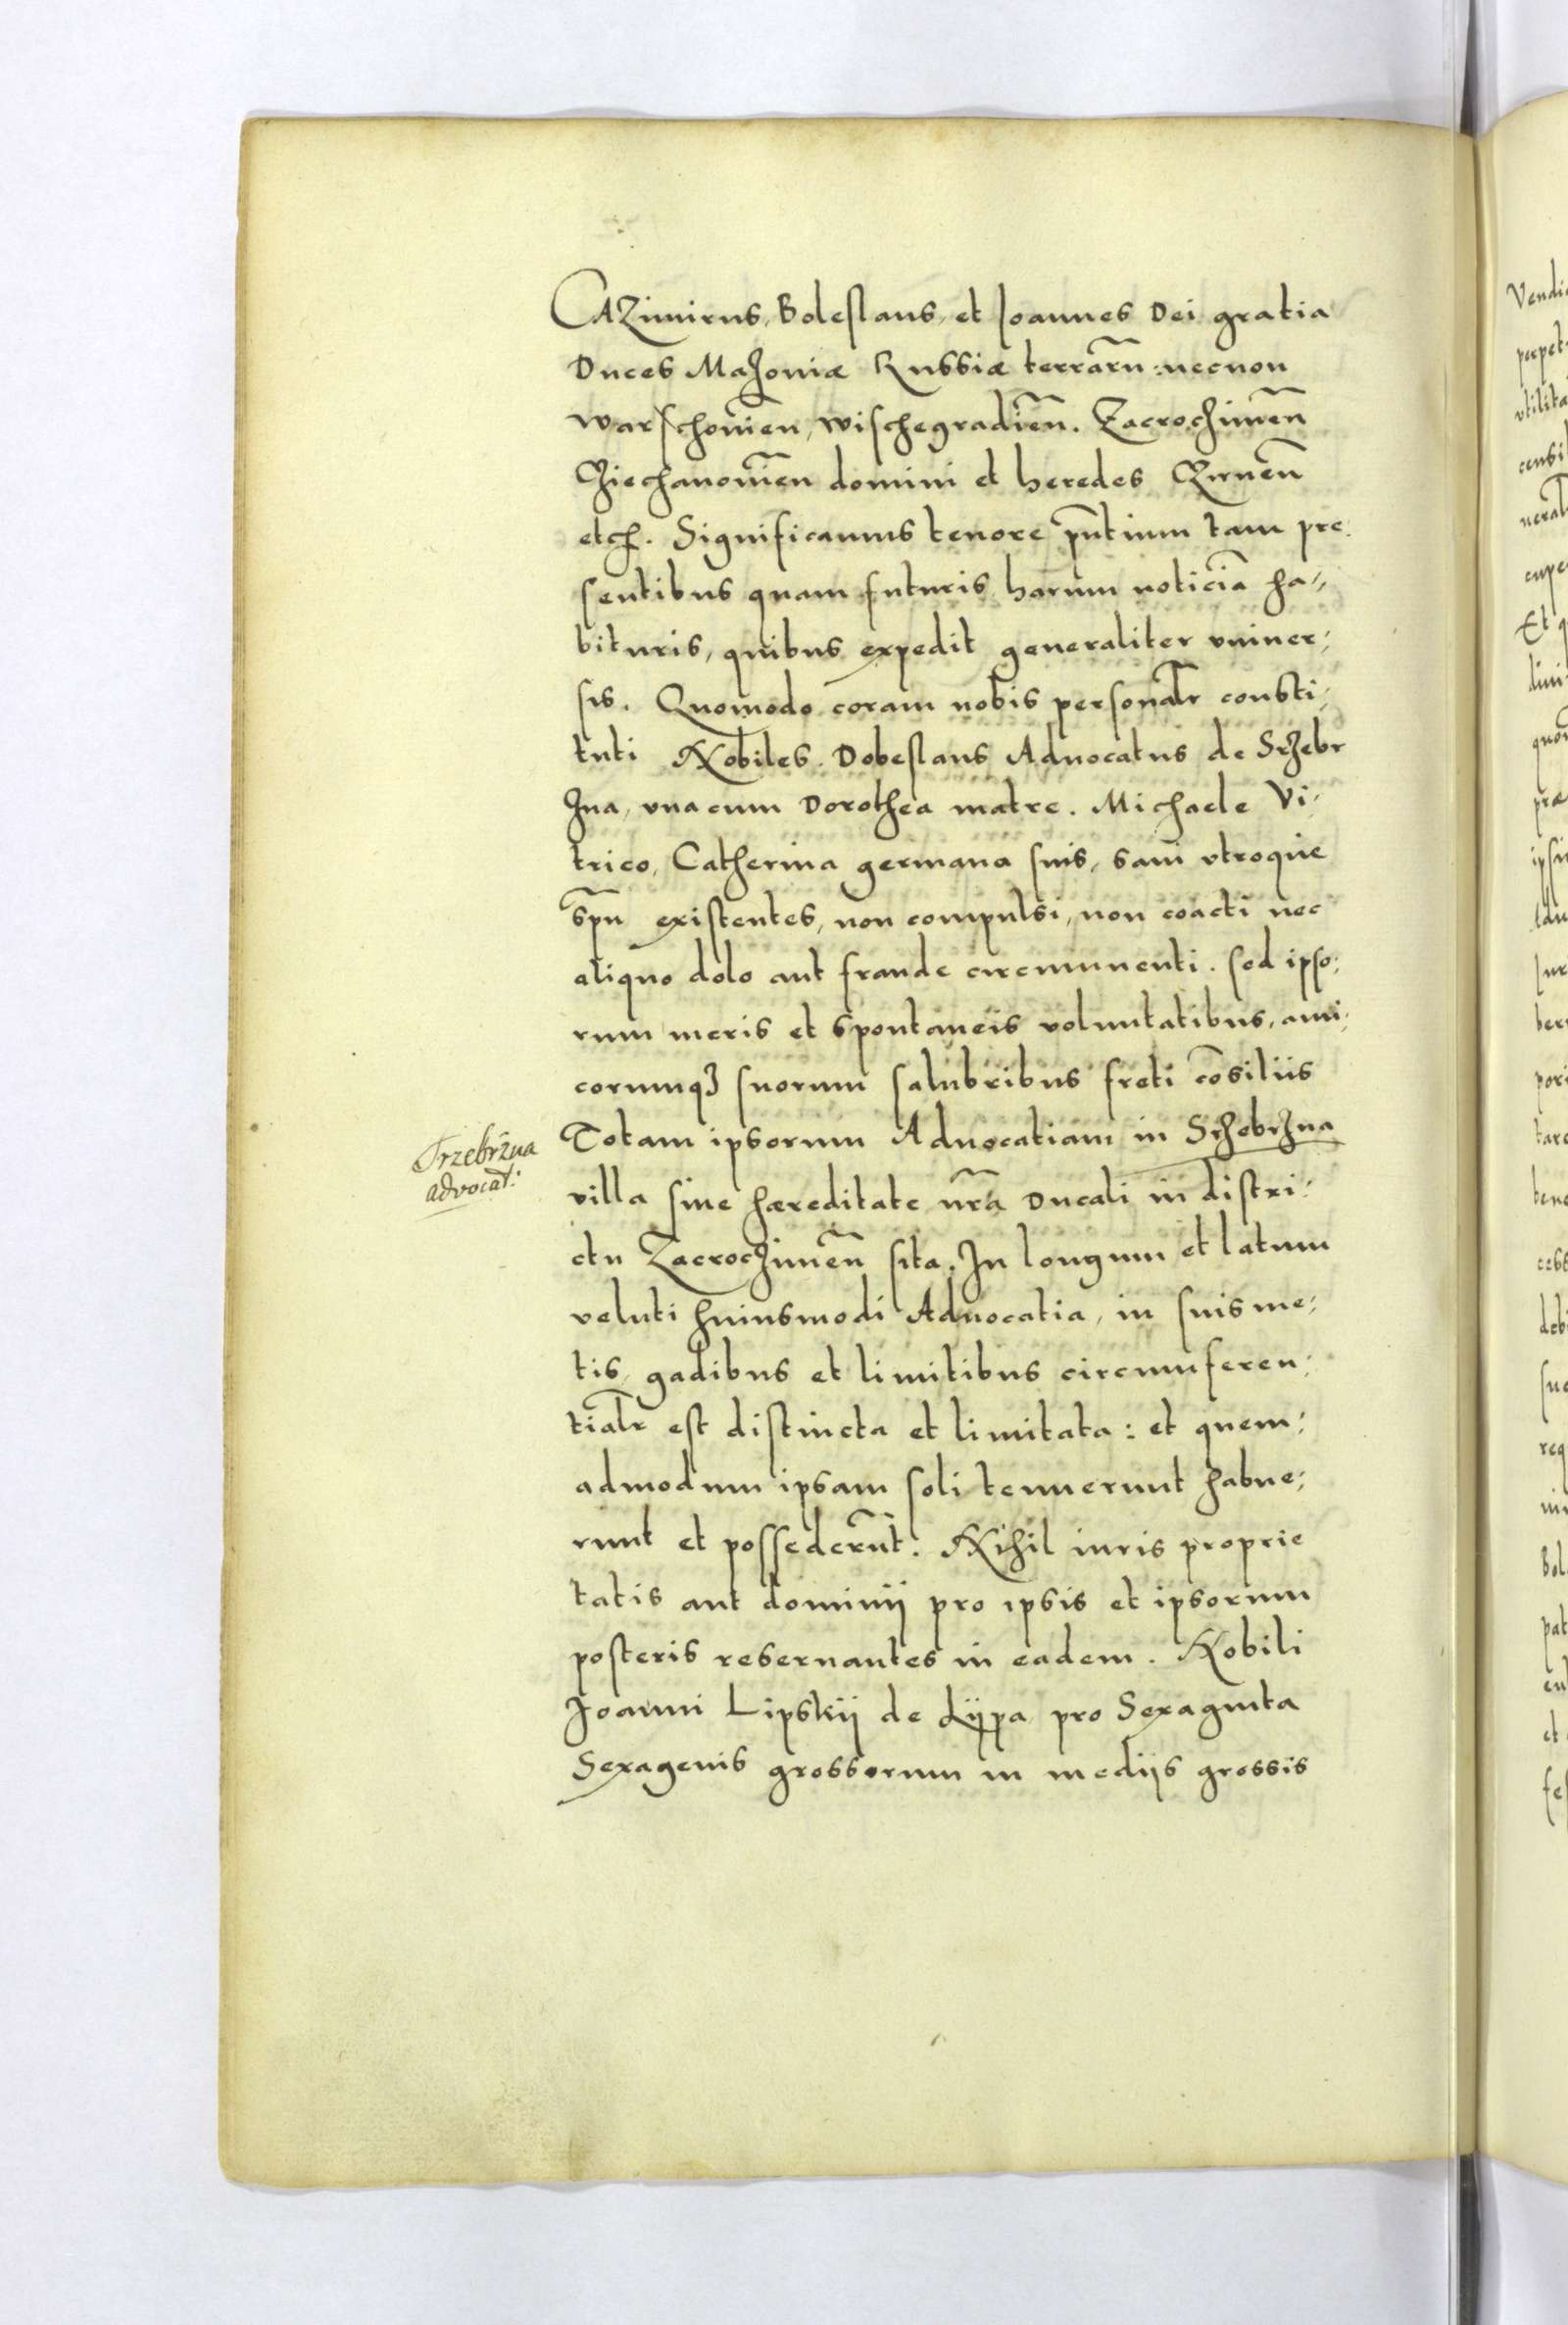 CAZimirus, Boleslaus, et Joannes Dei gratia
Duces Mazoniæ Russiæ terrarũ: necnon
warschouien̄, wischegradien̄. Zacrocзimen̄
Cziechanouien̄ domini et heredes Czirnen̄
etc. Significamus tenore pñtium tam pre
sentibus quam futuris harum noticiã ha„
bituris, quibus expedit generaliter vniuer;
sis. Quomodo coram nobis personalr̃ consti;
tuti Nobiles. Dobeslaus Aduocatus de Srzebr
zna, vna cum Dorothea matre. Michaele Vi;
trico, Catherina germana suis, sani vtroque
spũ existentes, non compulsi, non coacti nec
aliquo dolo aut fraude circumuenti. sed ipso;
rum meris et spontaneis voluntatibus, ami;
corumqз suorum salubribus freti cõsiliis
Totam ipsorum Aduocatiam in Srzebrzna
villa siue hæreditate nr̃a Ducali in distri;
ctu Zacrocзimen̄ sita. In longum et latum
veluti huiusmodi Aduocatia, in suis me;
tis, gadibus et limitibus circumferen;
tialr̃ est distincta et limitata: et quem;
admodum ipsam soli tenuerunt habue;
runt et possederũt. Nihil iuris proprie
tatis aut dominij pro ipsis et ipsorum
posteris reseruantes in eadem. Nobili
Joanni Lipskij de Lijpa pro Sexaginta
Sexagenis grossorum in medijs grossis
Trzebrzna
advocat: